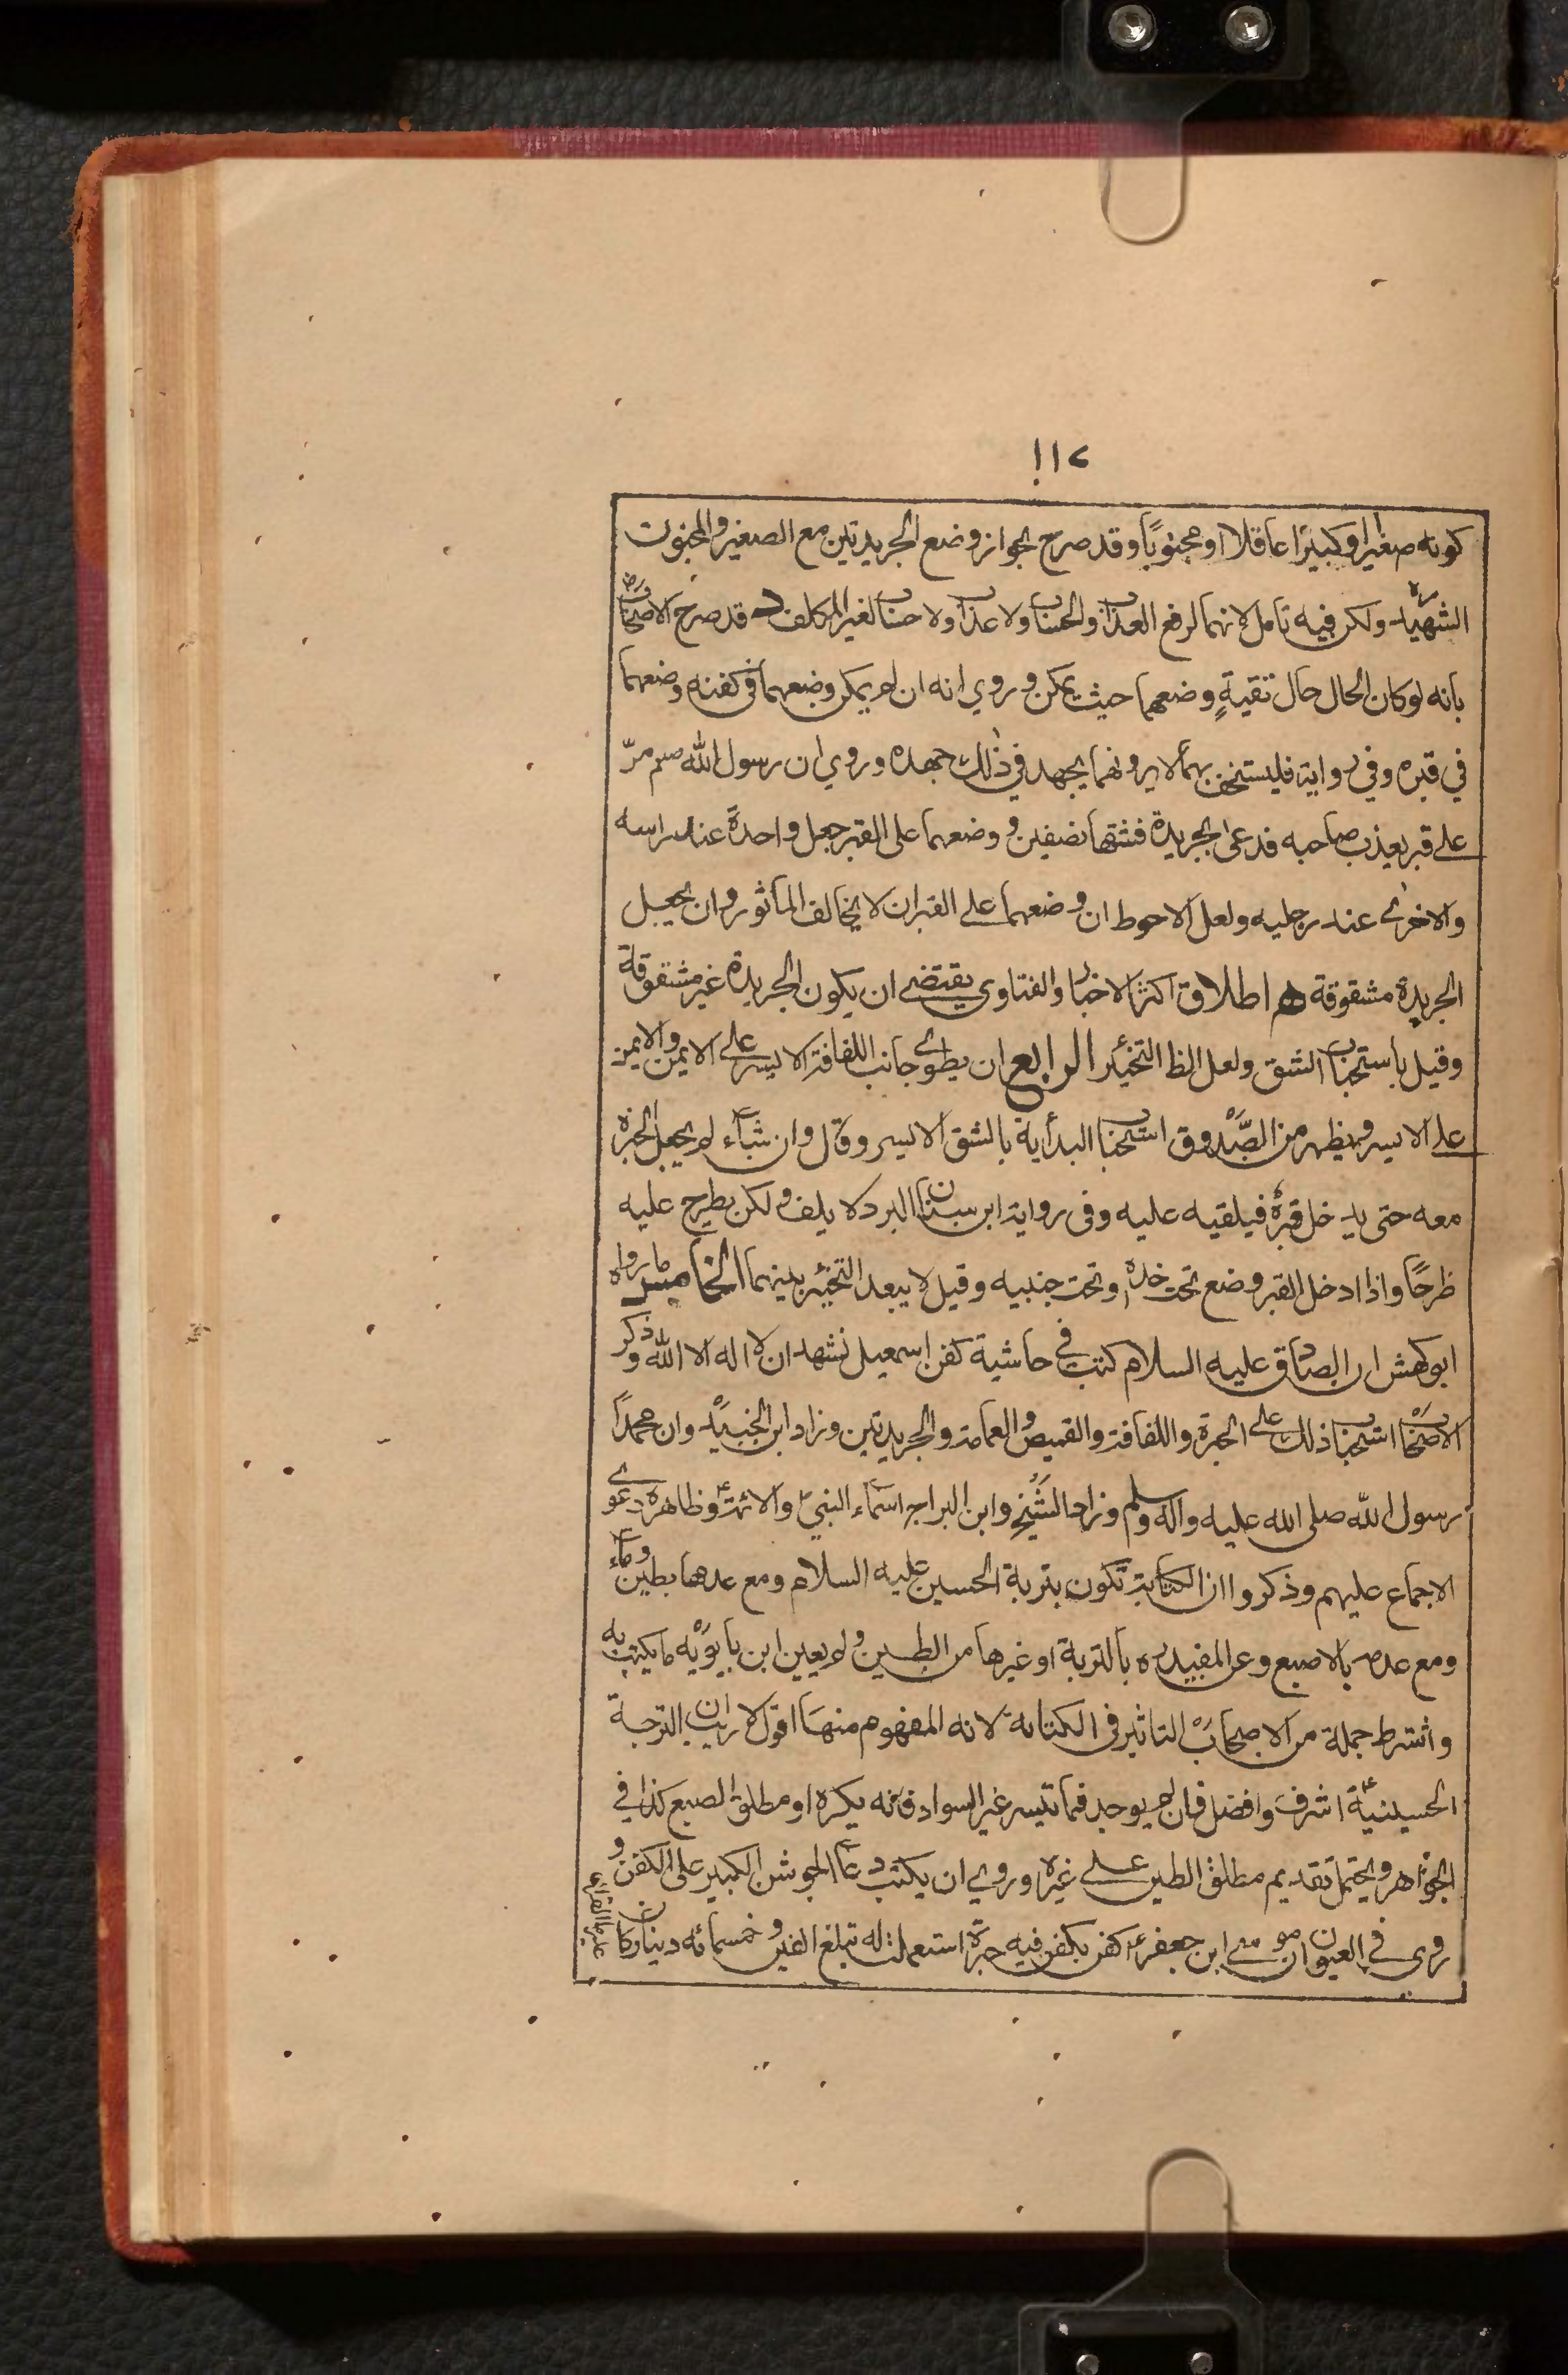 ١١٢
كونه صغيرا وكبيرًا عاقلا او مجنونًا وقد صرح بجواز وضع الجريدتين مع الصغير والمجنون
الشهيد ره ولكن فيه تامل لانهما لرفع العذاب والحساب ولا عذاب ولا حساب لغير المكلف وقد صرح الاصحاب رض
بانه لو كان الحال حال تقيةٍ وضعهما حيث يمكن وروي انه ان لم يمكن وضعهما في كفنه وضعهما
في قبره وفي رواية فليستخف بهما لا يرونهما يجهد في ذلك جهده وروي ان رسول الله صم مرّ
على قبر يعذب صاحبه فدعى الجريدة فشقها نصفين ووضعهما على القبر جعل واحدةً عند راسه
والاخرى عند رجليه ولعل الاحوط ان وضعهما على القبر ان لا يخالف الماثور وان يجعل
الجريدة مشقوقة اطلاق اكثر الاخبار والفتاوي يقتضي ان يكون الجريدة غير مشقوقة
وقيل باستحباب الشق ولعل الظ التخيير الرابع ان يطوى جانب اللفافة الايسر على الايمن والايمن
على الايسر ويظهر من الصّدوق استحباب البدأية بالشق الايسر وقال وان شاء لم يجعل الحبرة
معه حتى يدخل قبرهٗ فيلقيه عليه وفى رواية ابن سنان البرد لا يلف ولكن يطرح عليه
طرحًا واذا ادخل القبر وضع تحت خده وتحت جنبيه وقيل لا يبعد التخيير بينهما الخامس ما رواه
ابو كهمش ان الصادق عليه السلام كتب في حاشية كفن اسمعيل نشهد ان لا اله الا الله وذكر
الاصحاب استحباب ذلك على الحبرة واللفافة والقميص والعمامة والجريدتين وزاد ابن الجنيد وان محمدًا
رسول الله صلى الله عليه واله وسلم وزاد الشيخ وابن البراج اسماء النبي والائمة وظاهره دعوى
الاجماع عليهم وذكروا ان الكتابة تكون بتربة الحسين عليه السلام ومع عدمها بطين وماء
ومع عدمه بالاصبع وعن المفيد ره بالتربة او غيرها من الطين ولم يعين ابن بابويه ما يكتب به
واشترط جملة من الاصحاب التاثير فى الكتابة لانه المفهوم منها اقول لا ريب ان التربة
الحسينية اشرف وافضل فان لم يوجد فما تيسر غير السواد فانه يكره او مطلق الصبع كذا في
الجواهر ويحتمل تقديم مطلق الطين على غيره وروي ان يكتب دعا الجوشن الكبير على الكفن و
روى في العيون ان موسى ابن جعفر ع كفن بكفن فيه حبرة استعملت له تبلغ الفين وخمسمائه دينار كان
عليها القران